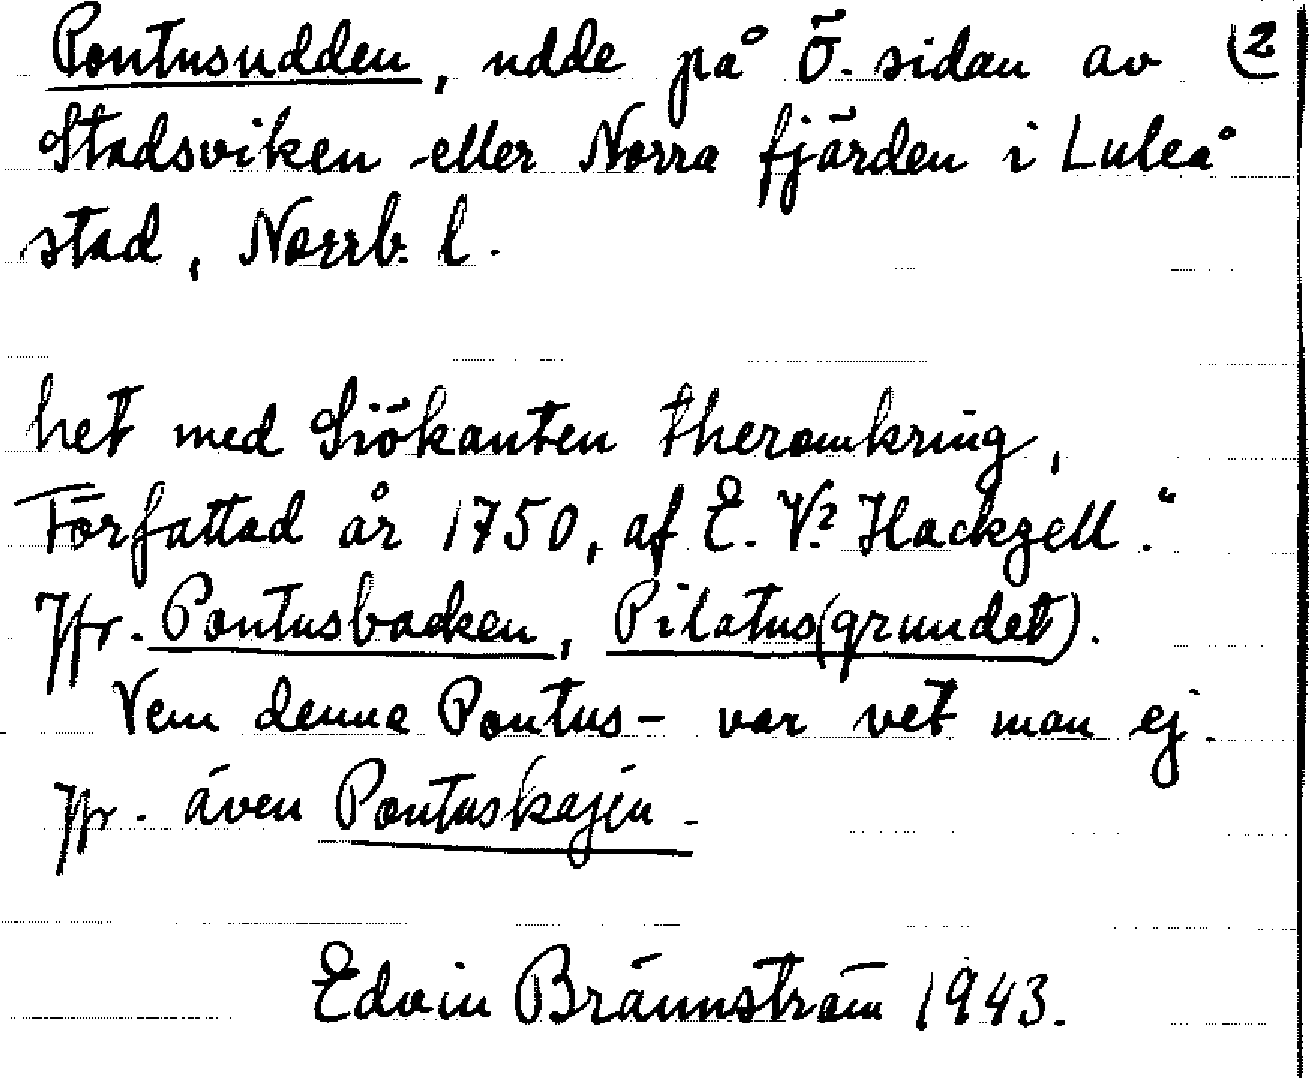 Pontusudden, udde på Ö. sidan av (2
Stadsviken eller Norra fjärden i Luleå
stad, Norrb. l.
het med Siökanten theromkring,
Författad år 1750, af E. V? Hackzell."
Jfr. Pontusbacken, Pilatus(grundet).
Vem denne Pontus - var vet man ej.
Jfr. även Pontuskajen.
Edvin Brännström 1943.